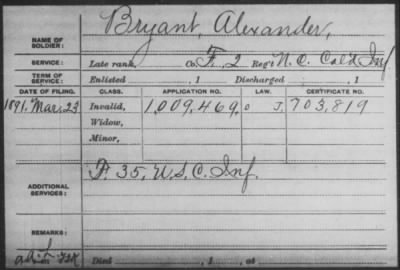 NAME OF SOLDIER: Bryant, Alexander,
SERVICE: Late rank, Co. F, 2 Reg't N.C. Col'd Inf
TERM OF SERVICE: Enlisted , 1 Discharged , 1
DATE OF FILING. CLASS. APPLICATION NO. LAW. CERTIFICATE NO.
1891. Mar. 23 Invalid, 1,009,469, J, 703,819
Widow,
Minor,
ADDITIONAL SERVICES: F. 35, U.S.C. Inf.
REMARKS:
Died , 1 , at